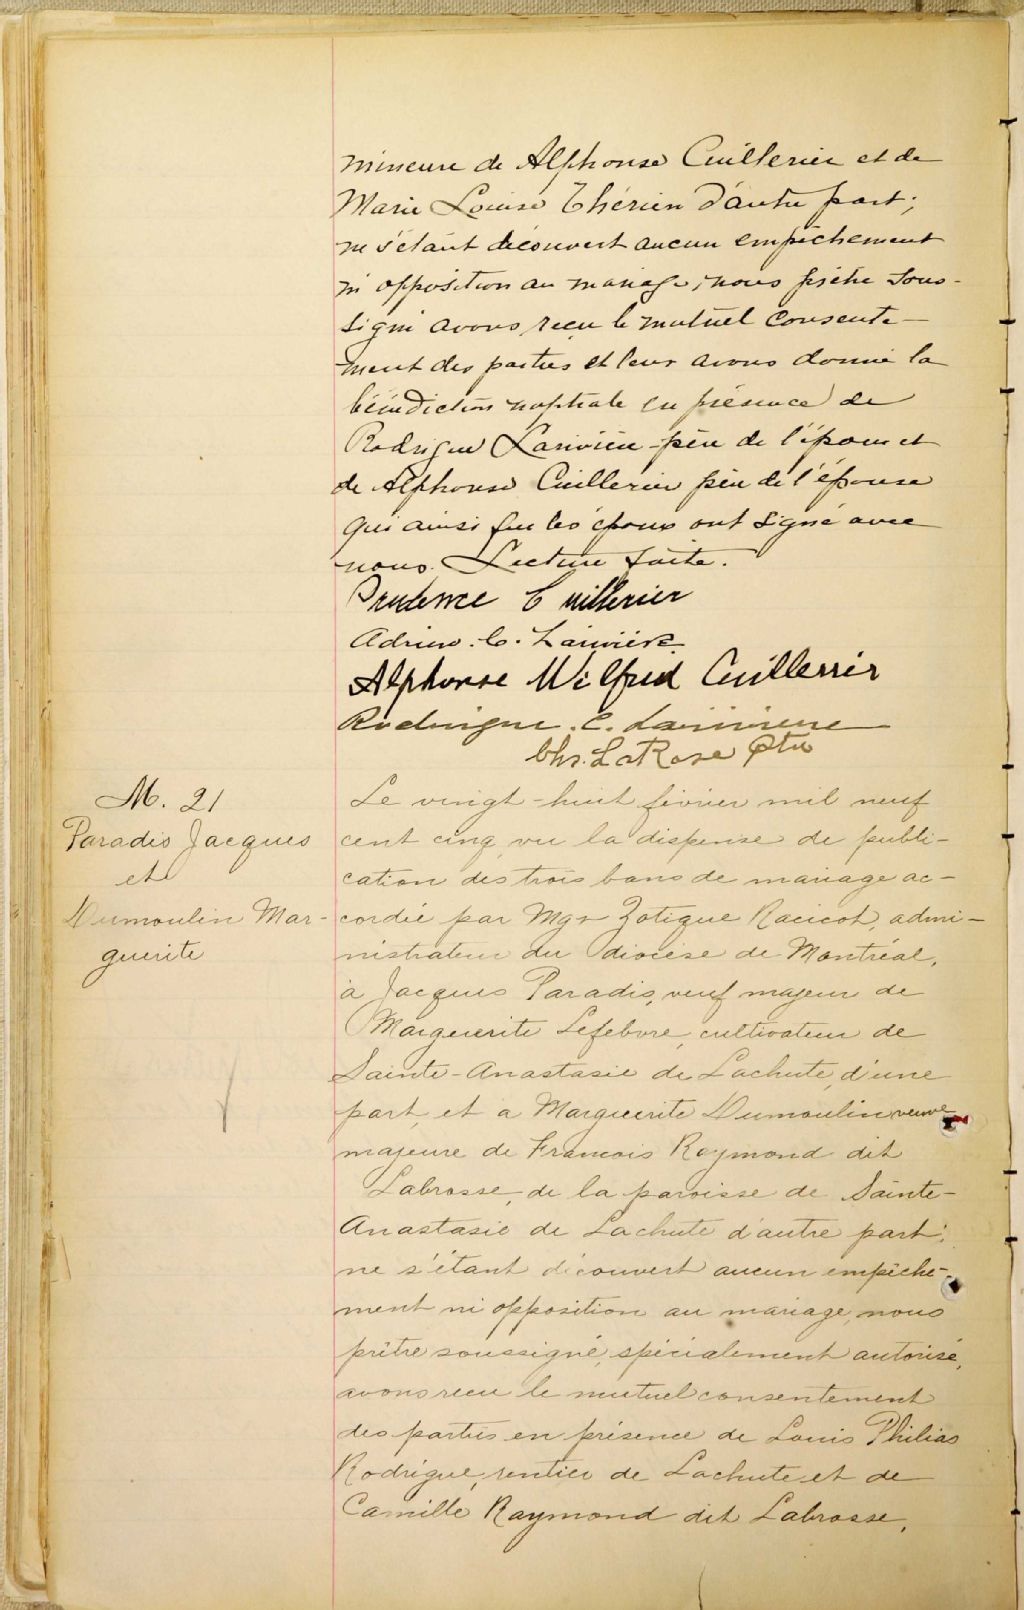 mineure de Alphonse Cuillerier et de
Marie Louise Thérien d'autre part;
ne s'étant découvert aucun empêchement
ni opposition au mariage, nous prêtre sous-
signé avons reçu le mutuel consente-
ment des parties et leur avons donné la
bénédiction nuptiale en présence de
Rodrigue Larivière père de l'époux et
de Alphonse Cuillerier père de l'épouse
qui ainsi que les époux ont signé avec
nous. Lecture faite.
Prudence Cuillerier
Adrien. C. Larivière
Alphonse Wilfrid Cuillerrier
Rodrigue. C. Lariviere
Chs. LaRose Ptre
M. 21
Paradis Jacques
et
Dumoulin Mar-
guerite
Le vingt-huit février mil neuf
cent cinq, vu la dispense de publi-
cation des trois bans de mariage ac-
cordée par Mgr Zotique Racicot, admi-
nistrateur du diocèse de Montréal,
à Jacques Paradis, veuf majeur de
Marguerite Lefebvre, cultivateur de
Sainte-Anastasie de Lachute, d'une
part, et à Marguerite Dumoulin veuve
majeure de Francois Raymond dit
Labrosse, de la paroisse de Sainte-
Anastasie de Lachute d'autre part;
ne s'étant découvert aucun empêche-
ment ni opposition au mariage, nous
prêtre soussigné, spécialement autorisé,
avons recu le mutuel consentement
des parties en présence de Louis Philias
Rodrigue, rentier de Lachute et de
Camille Raymond dit Labrosse,